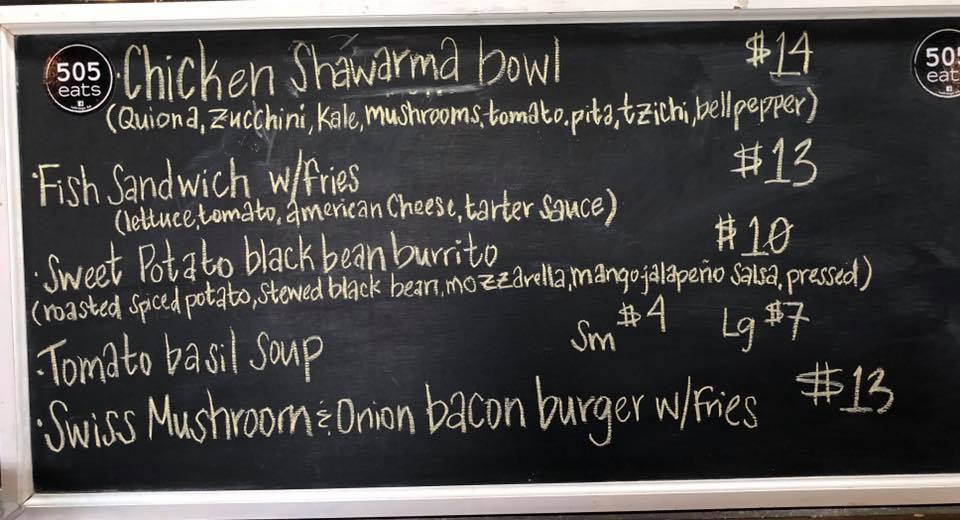 505 eats
·Chicken Shawarma bowl $14
(Quiona, Zucchini, Kale, mushrooms, tomato, pita, tzichi, bell pepper)
·Fish Sandwich w/fries $13
(lettuce, tomato, american Cheese, tarter sauce)
·Sweet Potato black bean burrito $10
(roasted spiced potato, stewed black bean, mozzarella, mango jalapeño salsa, pressed)
·Tomato basil soup Sm $4 Lg $7
·Swiss Mushroom & Onion bacon burger w/fries $13
505
eats